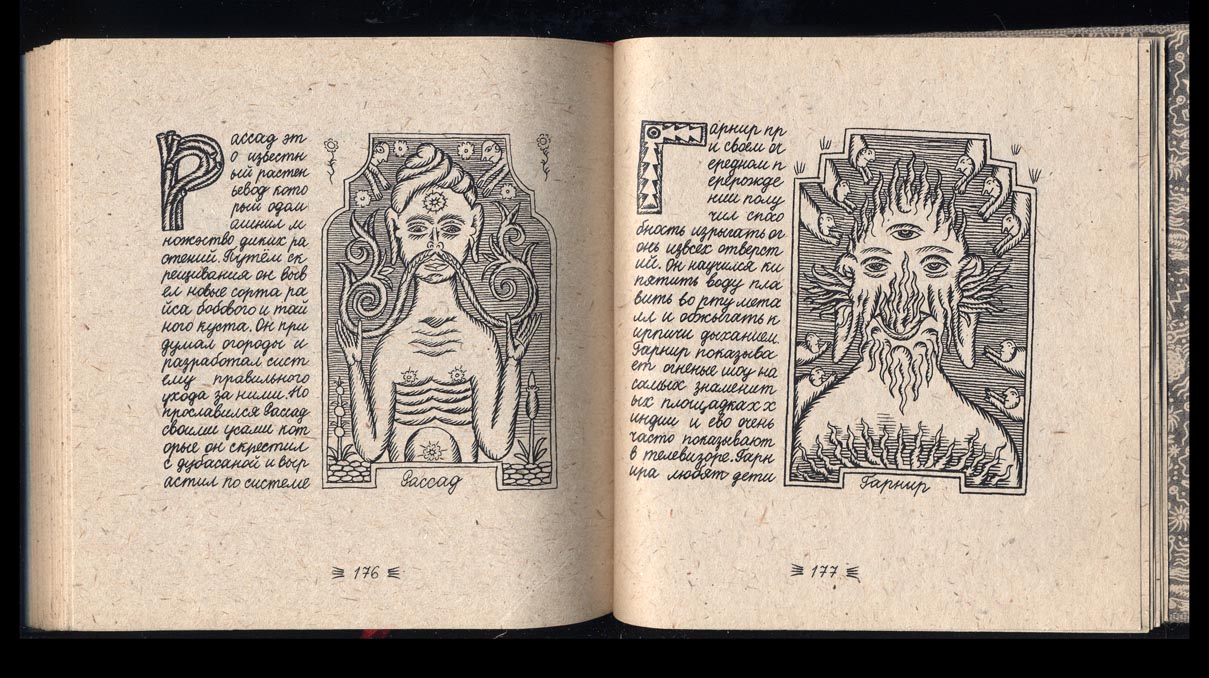 Рассад эт
о известн
ый растен
ьевод кото
рый одом
ашнил м
ножэство диких ра
отений. Путём ск
рещивания он выв
ел новые сорта ра
йса бобового и тай
ного куста. Он при
думал огороды и
разработал сист
ему правильного
ухода за ними. Но
прославился Рассад
своими усами кот
орые он скрестил
с дубасаной и выр
астил по системе
Рассад
176
Гарнир пр
и своем оч
ередном п
ерерожде
нии полу
чил спосо
бность изрыгать ог
онь извсех отверст
ий. Он научился ки
пятить воду пла
вить во рту мета
лл и обжыгать к
ирпичи дыханием.
Гарнир показыва
ет огненые шоу на
самых знаменит
ых площадках х
индии и ево очень
часто показывают
в телевизоре. Гарн
ира любят дети
Гарнир
177